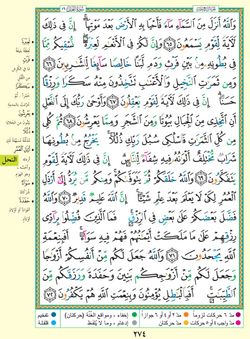 وَٱللَّهُ أَنزَلَ مِنَ ٱلسَّمَآءِ مَآءً فَأَحْيَا بِهِ ٱلْأَرْضَ بَعْدَ مَوْتِهَآ إِنَّ فِى ذَٰلِكَ
لَءَايَةً لِّقَوْمٍ يَسْمَعُونَ ٦٥ وَإِنَّ لَكُمْ فِى ٱلْأَنْعَٰمِ لَعِبْرَةً نُّسْقِيكُم مِّمَّا
فِى بُطُونِهِۦ مِنۢ بَيْنِ فَرْثٍ وَدَمٍ لَّبَنًا خَالِصًا سَآئِغًا لِّلشَّٰرِبِينَ ٦٦
وَمِن ثَمَرَٰتِ ٱلنَّخِيلِ وَٱلْأَعْنَٰبِ تَتَّخِذُونَ مِنْهُ سَكَرًا وَرِزْقًا
حَسَنًا إِنَّ فِى ذَٰلِكَ لَءَايَةً لِّقَوْمٍ يَعْقِلُونَ ٦٧ وَأَوْحَىٰ رَبُّكَ إِلَى ٱلنَّحْلِ
أَنِ ٱتَّخِذِى مِنَ ٱلْجِبَالِ بُيُوتًا وَمِنَ ٱلشَّجَرِ وَمِمَّا يَعْرِشُونَ ٦٨ ثُمَّ كُلِى
مِن كُلِّ ٱلثَّمَرَٰتِ فَٱسْلُكِى سُبُلَ رَبِّكِ ذُلُلًا يَخْرُجُ مِنۢ بُطُونِهَا
شَرَابٌ مُّخْتَلِفٌ أَلْوَٰنُهُۥ فِيهِ شِفَآءٌ لِّلنَّاسِ إِنَّ فِى ذَٰلِكَ لَءَايَةً لِّقَوْمٍ
يَتَفَكَّرُونَ ٦٩ وَٱللَّهُ خَلَقَكُمْ ثُمَّ يَتَوَفَّىٰكُمْ وَمِنكُم مَّن يُرَدُّ إِلَىٰٓ أَرْذَلِ
ٱلْعُمُرِ لِكَىْ لَا يَعْلَمَ بَعْدَ عِلْمٍ شَيْـًٔا إِنَّ ٱللَّهَ عَلِيمٌ قَدِيرٌ ٧٠ وَٱللَّهُ
فَضَّلَ بَعْضَكُمْ عَلَىٰ بَعْضٍ فِى ٱلرِّزْقِ فَمَا ٱلَّذِينَ فُضِّلُوا۟ بِرَآدِّى
رِزْقِهِمْ عَلَىٰ مَا مَلَكَتْ أَيْمَٰنُهُمْ فَهُمْ فِيهِ سَوَآءٌ أَفَبِنِعْمَةِ
ٱللَّهِ يَجْحَدُونَ ٧١ وَٱللَّهُ جَعَلَ لَكُم مِّنْ أَنفُسِكُمْ أَزْوَٰجًا
وَجَعَلَ لَكُم مِّنْ أَزْوَٰجِكُم بَنِينَ وَحَفَدَةً وَرَزَقَكُم مِّنَ
ٱلطَّيِّبَٰتِ أَفَبِٱلْبَٰطِلِ يُؤْمِنُونَ وَبِنِعْمَتِ ٱللَّهِ هُمْ يَكْفُرُونَ ٧٢
النحل
٢٧٤